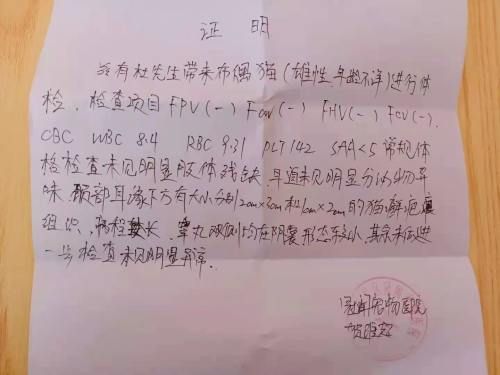 证 明
兹有杜先生带来布偶猫(雄性.年龄不详)进行体
检、检查项目FPV(-) Fcov(-) FHV(-) Fcv(-).
CBC WBC 8.4 RBC 9.31 PLT 142 SAA<5 常规体
格检查未见明显肢体残缺.耳道未见明显分泌物异
味.颈部耳缘下方有大小分别2cm×3cm和1cm×2cm的猫癣疤
组织.病程较长.睾丸双侧均在阴囊形态较小.其余未做进
一步检查未见明显异常.
宠物医院